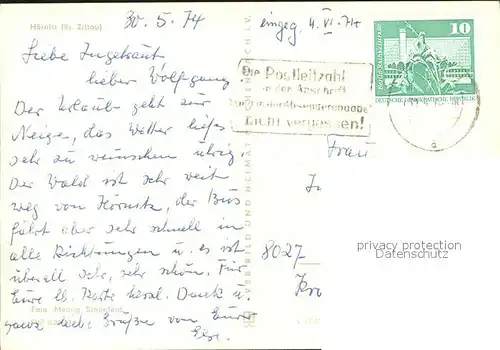 Hörnitz (Kr. Zittau)
30.5.74
eingeg. 4. VI. 74
Liebe Ingetraut,
lieber Wolfgang
Der Urlaub geht zur
Neige, das Wetter ließ
sehr zu wünschen übrig.
Der Wald ist sehr weit
weg von Hörnitz, der Bus
fährt aber sehr schnell in
alle Richtungen u. es ist
überall sehr, sehr schön. Für
Eure lb. Karte herzl. Dank u.
ganz liebe Grüße von Eurer
Else.
10
DEUTSCHE DEMOKRATISCHE REPUBLIK
Die Postleitzahl
in der Anschrift
und in der Absenderangabe
nicht vergessen!
Frau
8027
VERLAG BILD UND HEIMAT
privacy protection
Datenschutz